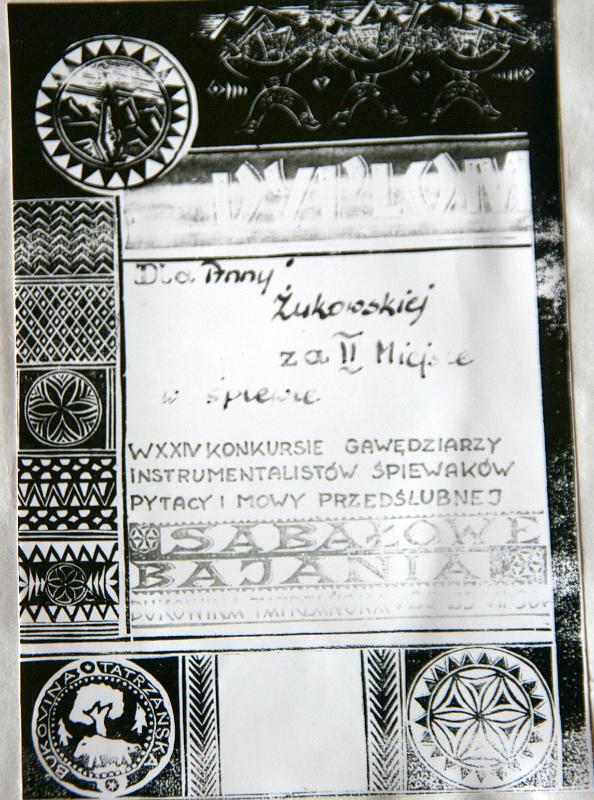 DYPLOM
Dla Anny
Żukowskiej
za II Miejsce
w śpiewie
W XXIV KONKURSIE GAWĘDZIARZY
INSTRUMENTALISTÓW ŚPIEWAKÓW
PYTACY I MOWY PRZEDŚLUBNEJ
SABAŁOWE
BAJANIA
BUKOWINA TATRZAŃSKA
BUKOWINA TATRZAŃSKA